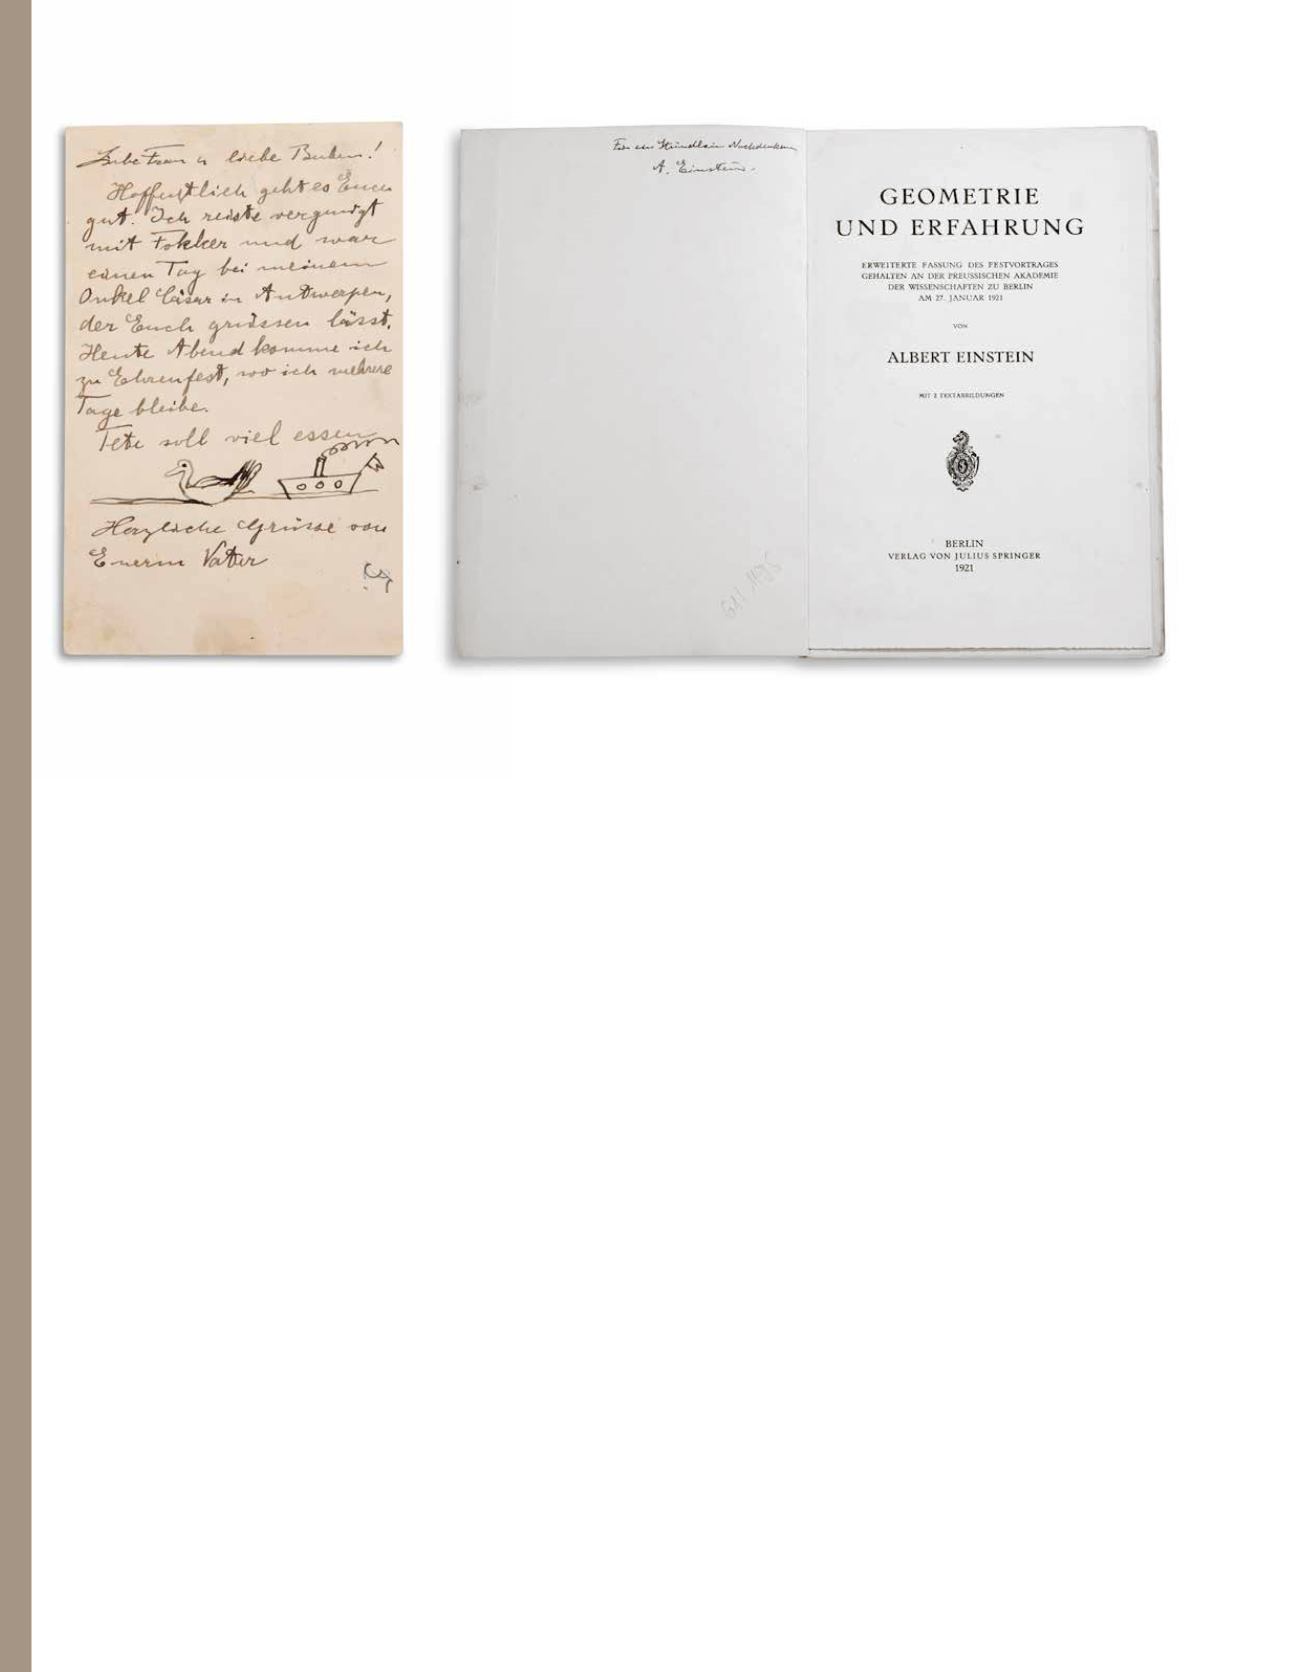 Liebe Frau u liebe Buben!
Hoffentlich geht es Euch
gut. Ich reiste vergnügt
mit Fokker und war
einen Tag bei meinem
Onkel Cäsar in Antwerpen,
der Euch grüssen lässt.
Heute Abend komme ich
zu Ehrenfest, wo ich mehrere
Tage bleibe.
Tete soll viel essen
Herzliche Grüsse von
Euerm Vater
Für ein Stündlein Nachdenken
A. Einstein.
GEOMETRIE
UND ERFAHRUNG
ERWEITERTE FASSUNG DES FESTVORTRAGES
GEHALTEN AN DER PREUSSISCHEN AKADEMIE
DER WISSENSCHAFTEN ZU BERLIN
AM 27. JANUAR 1921
VON
ALBERT EINSTEIN
MIT 2 TEXTABBILDUNGEN
BERLIN
VERLAG VON JULIUS SPRINGER
1921